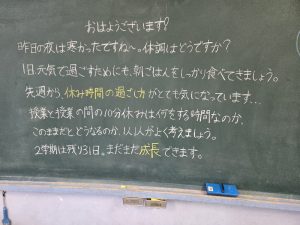 おはようございます!
昨日の夜は寒かったですね〜。体調はどうですか?
1日元気で過ごすためにも、朝ごはんをしっかり食べてきましょう。
先週から、休み時間の過ごし方がとても気になっています…
授業と授業の間の10分休みは何をする時間なのか、
このままだと、どうなるのか、1人1人がよく考えましょう。
2学期は残り31日。まだまだ成長できます。